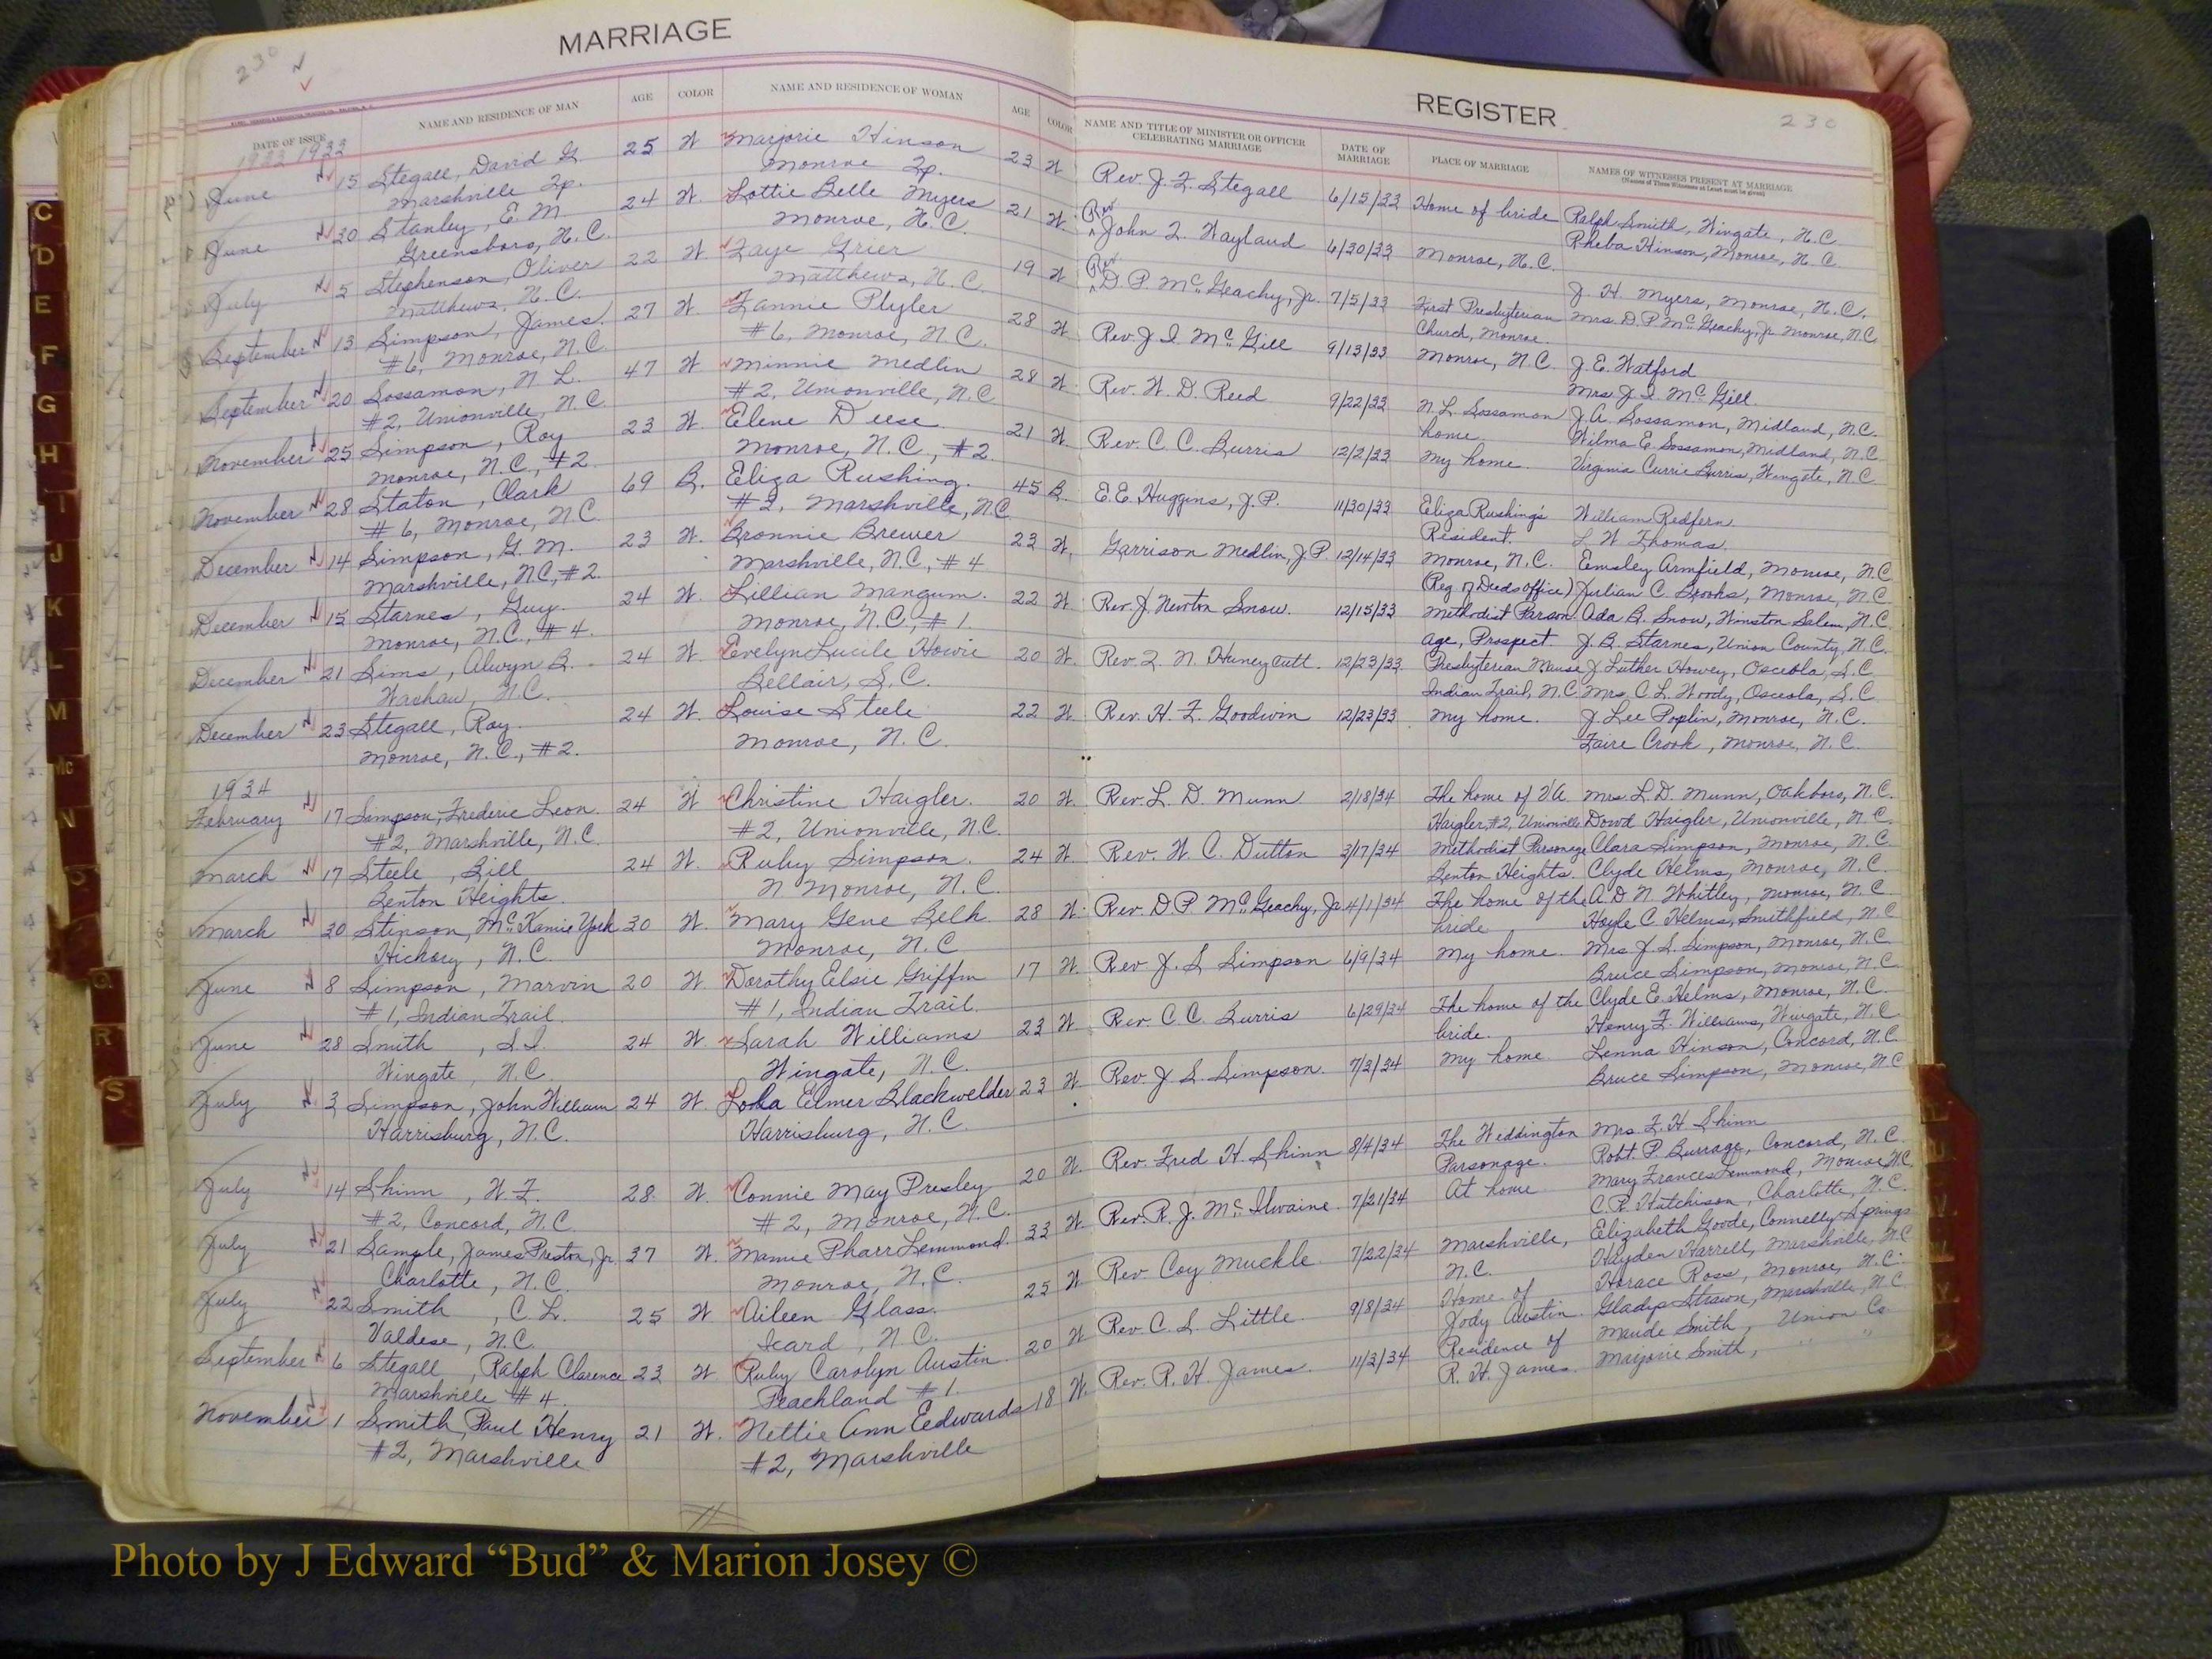 230
MARRIAGE
DATE OF ISSUE
NAME AND RESIDENCE OF MAN
AGE
COLOR
NAME AND RESIDENCE OF WOMAN
AGE
COLOR
1933
June 15 Stegall, David G. 25 W Marjorie Hinson 23 W
Marshville Tp. Monroe Tp.
June 30 Stanley, E. M. 24 W. Lottie Belle Myers 21 W.
Greensboro, N.C. Monroe, N.C.
July 5 Stephenson, Oliver 22 W Faye Grier 19 W
Matthews, N.C. Matthews, N.C.
September 13 Simpson, James 27 W. Fannie Plyler 28 W
#6, Monroe, N.C. #6, Monroe, N.C.
September 20 Sossamon, N. L. 47 W Minnie Medlin 28 W.
#2, Unionville, N.C. #2, Unionville, N.C.
November 25 Simpson, Roy 23 W. Elene Deese 21 W.
Monroe, N.C., #2 Monroe, N.C., #2
November 28 Staton, Clark 69 B. Eliza Rushing. 45 B.
#6, Monroe, N.C. #2, Marshville, N.C.
December 14 Simpson, G. M. 23 W. Bronnie Brewer 23 W.
Marshville, N.C., #2. Marshville, N.C., #4
December 15 Starnes, Guy. 24 W. Lillian Mangum. 22 W.
Monroe, N.C., #4. Monroe, N.C., #1.
December 21 Sims, Alwyn B. 24 W. Evelyn Lucile Howie 20 W.
Waxhaw, N.C. Bellair, S.C.
December 23 Stegall, Ray. 24 W. Louise Steele 22 W
Monroe, N.C., #2. Monroe, N.C.
1934
February 17 Simpson, Frederic Leon. 24 W Christine Haigler. 20 W.
#2, Marshville, N.C. #2, Unionville, N.C.
March 17 Steele, Bill 24 W. Ruby Simpson. 24 W
Benton Heights. N Monroe, N.C.
March 30 Stinson, McKamie York 30 W. Mary Gene Belk 28 W.
Hickory, N.C. Monroe, N.C
June 8 Simpson, Marvin 20 W. Dorothy Elsie Griffin 17 W.
#1, Indian Trail. #1, Indian Trail.
June 28 Smith, S.I. 24 W. Sarah Williams 23 W
Wingate, N.C. Wingate, N.C.
July 3 Simpson, John William 24 W. Elmer Blackwelder 23 W.
Harrisburg, N.C. Harrisburg, N.C.
July 14 Shinn, W. F. 28 W. Connie May Presley 20 W.
#2, Concord, N.C. #2, Monroe, N.C.
July 21 Sample, James Preston, Jr. 37 W. Mamie Pharr Lemmond. 33 W.
Charlotte, N.C. Monroe, N.C.
July 22 Smith, C. L. 25 W Aileen Glass. 25 W
Valdese, N.C. Icard, N.C.
September 6 Stegall, Ralph Clarence 23 W Ruby Carolyn Austin 20 W
Marshville #4. Peachland #1.
November 1 Smith, Paul Henry 21 W. Nettie Ann Eedwards 18 W.
#2, Marshville #2, Marshville
REGISTER
230
NAME AND TITLE OF MINISTER OR OFFICER CELEBRATING MARRIAGE
DATE OF MARRIAGE
PLACE OF MARRIAGE
NAMES OF WITNESSES PRESENT AT MARRIAGE
(Names of Three Witnesses at Least must be given)
Rev. J. F. Stegall 6/15/33 Home of bride Ralph Smith, Wingate, N.C.
Rheba Hinson, Monroe, N.C.
Rev John Q. Wayland 6/30/33 Monroe, N.C.
J. H. Myers, Monroe, N.C.
Rev D. P. McGeachy, Jr. 7/5/33 First Presbyterian Mrs. D. P. McGeachy, Jr. Monroe, N.C
Church, Monroe.
Rev. J I. McGill 9/13/33 Monroe, N.C. J. E. Watford
Mrs. J. I. McGill.
Rev. W. D. Reed 9/22/33 N. L. Sossamon J. A. Sossamon, Midland, N.C.
home. Wilma E. Sossamon, Midland, N.C
Rev. C. C. Burris 12/2/33 My home. Virginia Currie Burris, Wingate, N.C.
E. E. Huggins, J.P. 11/30/33 Eliza Rushing's William Redfern.
Resident. L W Thomas.
Garrison Medlin, J.P. 12/14/33 Monroe, N.C. Emsley Armfield, Monroe, N.C
(Reg. of Deeds office) Julian C. Brooks, Monroe, N.C.
Rev. J. Newton Snow. 12/15/33 Methodist Parson- Ada B. Snow, Winston Salem, N.C.
age, Prospect. J. B. Starnes, Union County, N.C.
Rev. Q. N. Huneycutt. 12/23/33 Presbyterian Manse J Luther Howey, Osceola, S.C.
Indian Trail, N.C. Mrs. C. L. Woody, Osceola, S.C
Rev. H. F. Goodwin 12/23/33 My home. J. Lee Poplin, Monroe, N.C.
Faire Crook, Monroe, N.C.
Rev. L. D. Munn 2/18/34 The home of V.A. Mrs. L. D. Munn, Oakboro, N.C.
Haigler, #2, Unionville Dowd Haigler, Unionville, N.C.
Rev. W. C. Dutton 3/17/34 Methodist Parsonage Clara Simpson, Monroe, N.C.
Benton Heights. Clyde Helms, Monroe, N.C.
Rev. D. P. McGeachy, Jr. 4/1/34 The home of the A. D. N. Whitley, Monroe, N.C.
bride Hoyle C. Helms, Smithfield, N.C
Rev J. S Simpson 6/9/34 My home. Mrs J. S. Simpson, Monroe, N.C.
Bruce Simpson, Monroe, N.C.
Rev. C. C. Burris 6/29/34 The home of the Clyde E. Helms, Monroe, N.C.
bride. Henry F. Williams, Wingate, N.C
Rev. J S. Simpson. 7/3/34 My home. Lenna Hinson, Concord, N.C.
Bruce Simpson, Monroe, N.C
Rev. Fred H. Shinn 8/4/34 The Weddington Mrs. F. H Shinn
Parsonage. Robt. P. Burrage, Concord, N.C.
Rev. R. J. McIlwaine. 7/21/34 At home Mary Frances Lemmond, Monroe, N.C.
C. R. Hutchison, Charlotte, N.C.
Rev. Coy Muckle 7/22/34 Marshville, Elizabeth Goode, Connelly Springs
N.C. Hayden Harrell, Marshville, N.C
Rev. C. S Little. 9/8/34 Home of Horace Ross, Monroe, N.C.
Jody Austin. Gladys Strawn, Marshville, N.C
Rev. R. H. James. 11/3/34 Residence of Maude Smith, Union Co.
R. H. James. Marjorie Smith, " "
C
D
E
F
G
H
I
J
K
L
M
Mc
N
O
Q
R
S
Photo by J Edward “Bud” & Marion Josey ©